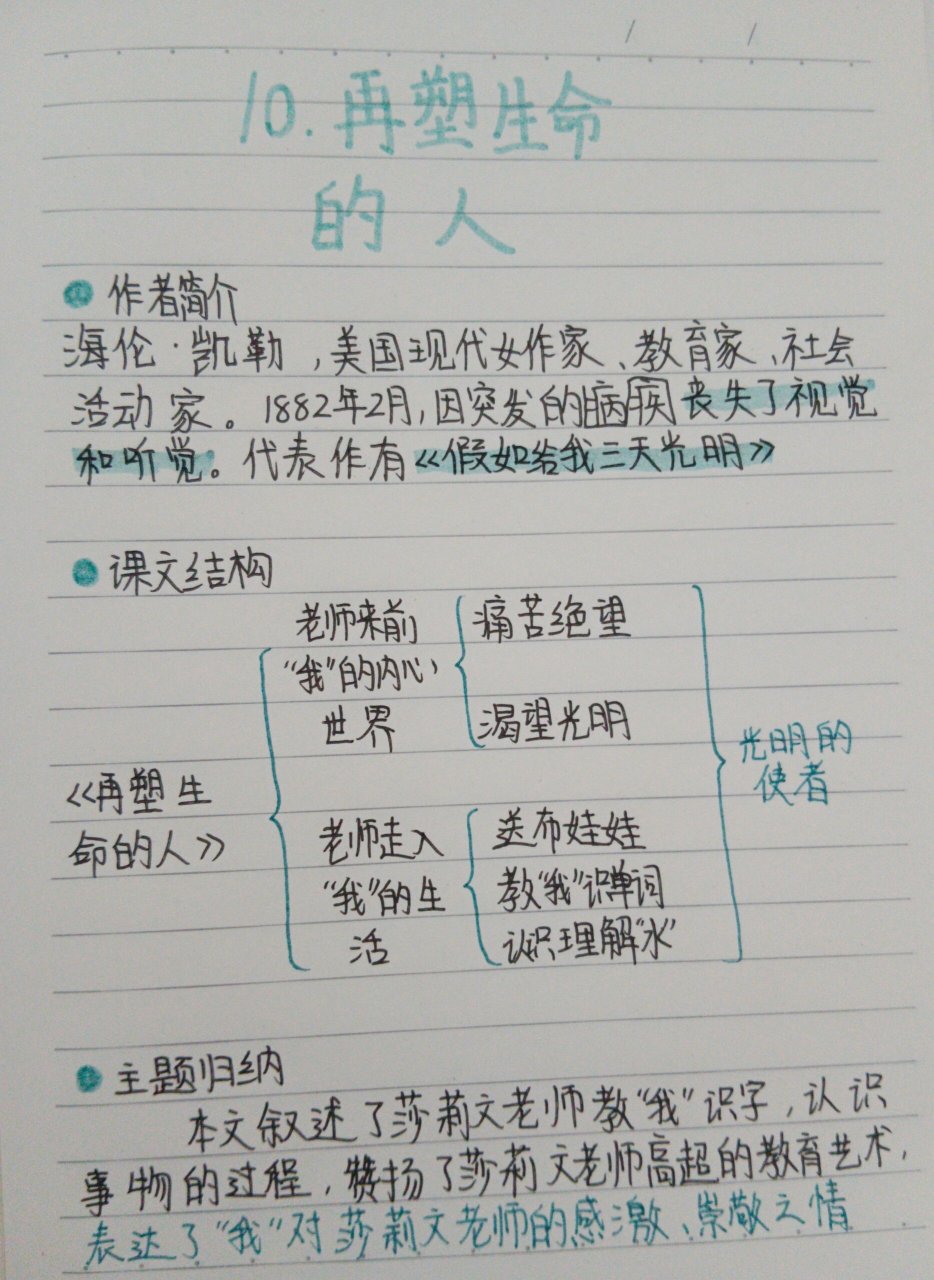 10.再塑生命
的人
作者简介
海伦·凯勒,美国现代女作家、教育家、社会
活动家。1882年2月,因突发的脑疾丧失了视觉
和听觉。代表作有《假如给我三天光明》
课文结构
老师来前
“我”的内心
世界
痛苦绝望
渴望光明
《再塑生
命的人》
老师走入
“我”的生
活
送布娃娃
教“我”识单词
认识理解“水”
光明的
使者
主题归纳
本文叙述了莎莉文老师教“我”识字,认识
事物的过程,赞扬了莎莉文老师高超的教育艺术,
表达了“我”对莎莉文老师的感激、崇敬之情